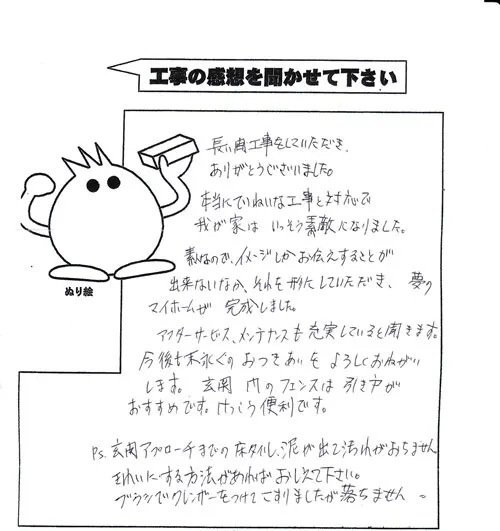 工事の感想を聞かせて下さい
長い間工事をしていただき、
ありがとうございました。
本当にていねいな工事と対応で
我が家は いっそう素敵になりました。
素人なので、イメージしかお伝えすることが
出来ないなか、それを形にしていただき、夢の
マイホームが 完成しました。
アフターサービス、メンテナンスも充実していると聞きます。
今後も末永くの おつきあいを よろしくおねがい
します。 玄関 内のフェンスは 引き戸が
おすすめです。けっこう便利です。
ぬり絵
Ps. 玄関アプローチまでの 床タイル、泥が出て汚れがおちません
きれいにする方法があれば おしえて下さい。
ブラシでクレンザーをつけて こすりましたが 落ちません。